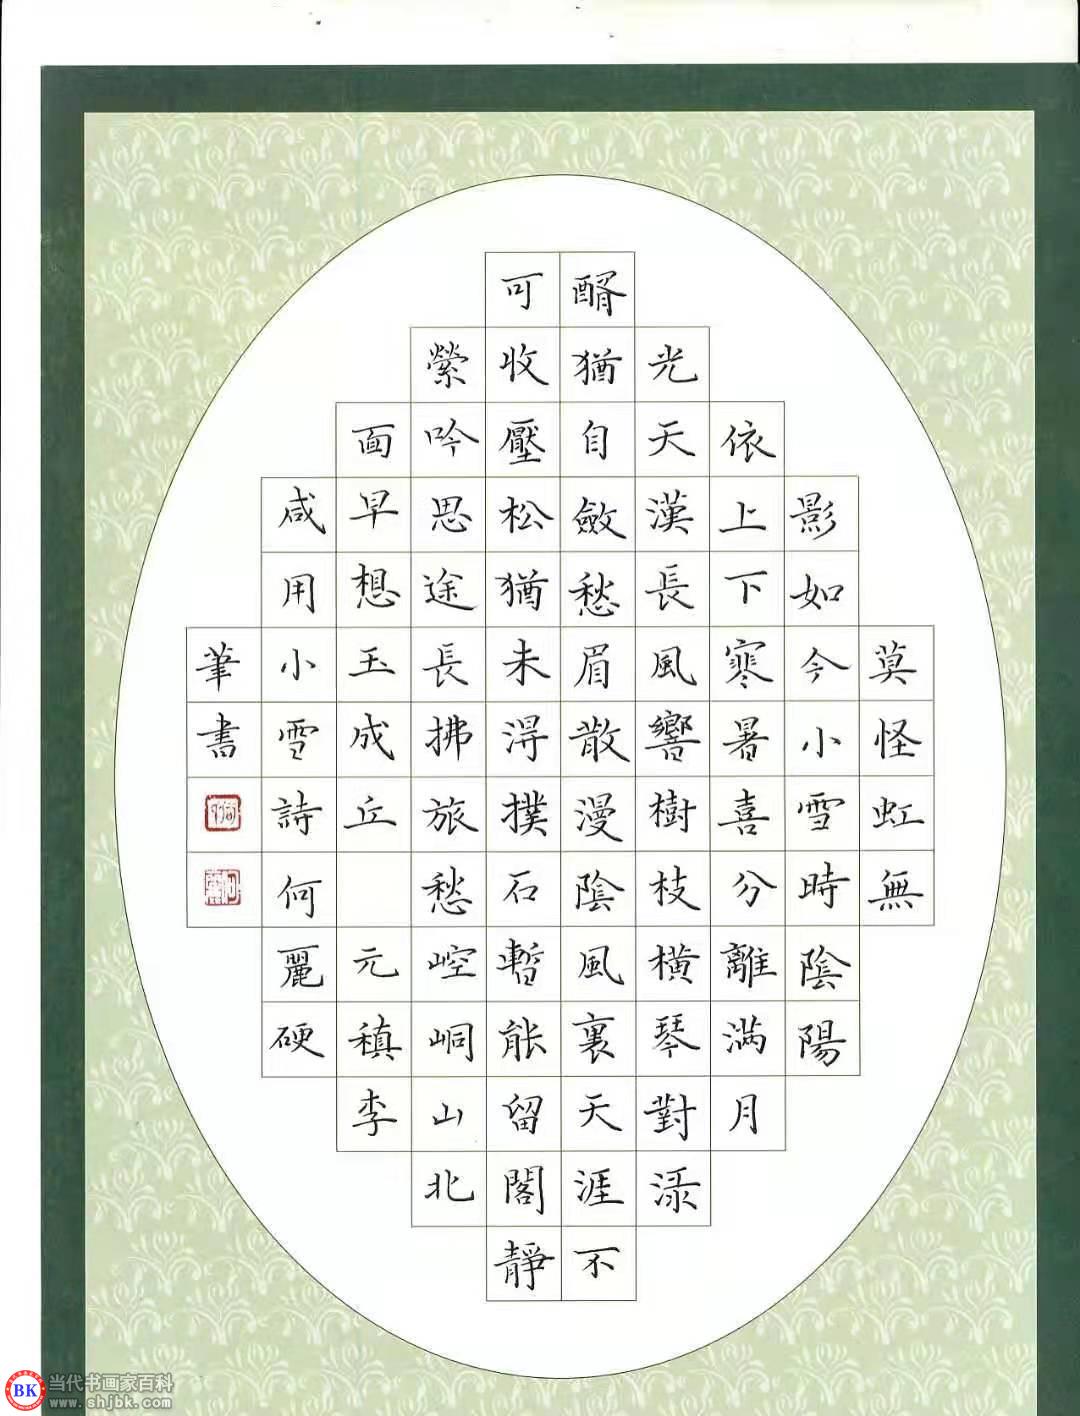 莫怪虹無
影如今小雪時陰陽
依上下寒暑喜分離滿月
光天漢長風響樹枝橫琴對渌
醑猶自斂愁眉散漫陰風裏天涯不
可收壓松猶未淂撲石暫能留閣靜
縈吟思途長拂旅愁崆峒山北
面早想玉成丘 元稹李
咸用小雪詩何麗硬
筆書
BK 当代书画家百科
www.shjbk.com